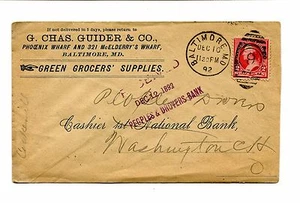 If not delivered in 5 days, please return to
G. CHAS. GUIDER & CO.,
PHŒNIX WHARF AND 321 McELDERRY'S WHARF,
BALTIMORE, MD.
GREEN GROCERS' SUPPLIES.
BALTIMORE, MD.
DEC 10
1130PM
92
DEC 12 1892
PEOPLES & DROVERS BANK
Cashier 1st National Bank,
Washington C. H.
O